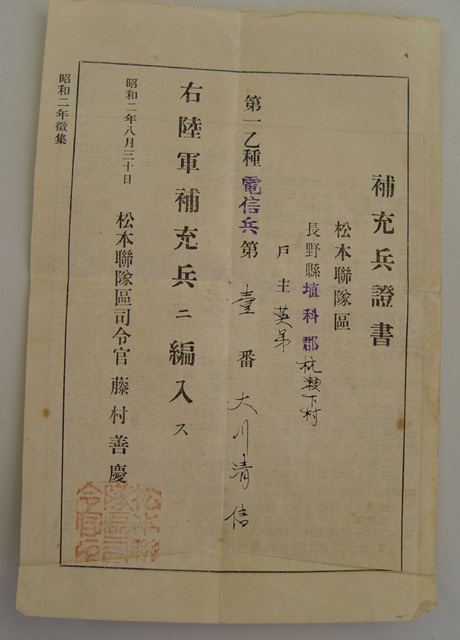 補充兵證書
松本聯隊區
長野縣埴科郡杭瀬下村
戸主英弟
第一乙種電信兵第壹番大川清信
右陸軍補充兵ニ編入ス
昭和二年八月三十日
松本聯隊區司令官藤村善慶
松本聯隊區司令官印
昭和二年徵集